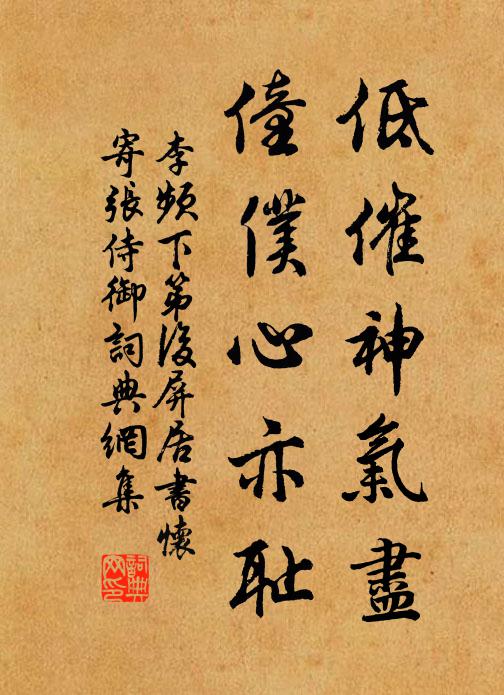 低催神氣盡
僮僕心亦耻
李頻下第後屏居書懷
寄張侍御詞典網集
詞典网印